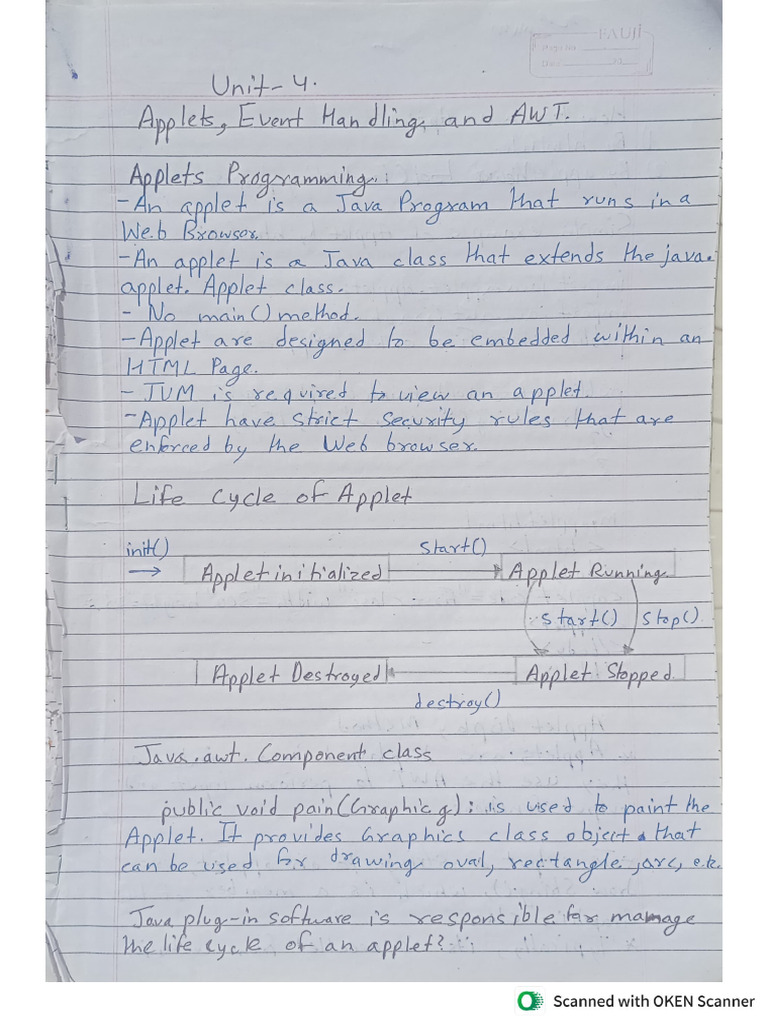 FAUJI
Page No.
Date
Unit-4.
Applets, Event Handling, and AWT.
Applets Programming:
- An applet is a Java Program that runs in a
Web Browser.
- An applet is a Java class that extends the java.
applet. Applet class.
- No main() method.
- Applet are designed to be embedded within an
HTML Page.
- JVM is required to view an applet.
- Applet have strict security rules that are
enforced by the Web browser.
Life Cycle of Applet
init() start()
Applet initialized Applet Running
start() stop()
Applet Destroyed Applet Stopped
destroy()
Java.awt.Component class
public void pain(Graphic g): is used to paint the
Applet. It provides Graphics class object that
can be used for drawing oval, rectangle, arc, e.k.
Java plug-in software is responsible for mamage
the life cycle of an applet?
Scanned with OKEN Scanner